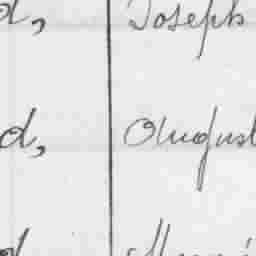 d, Joseph
d, August